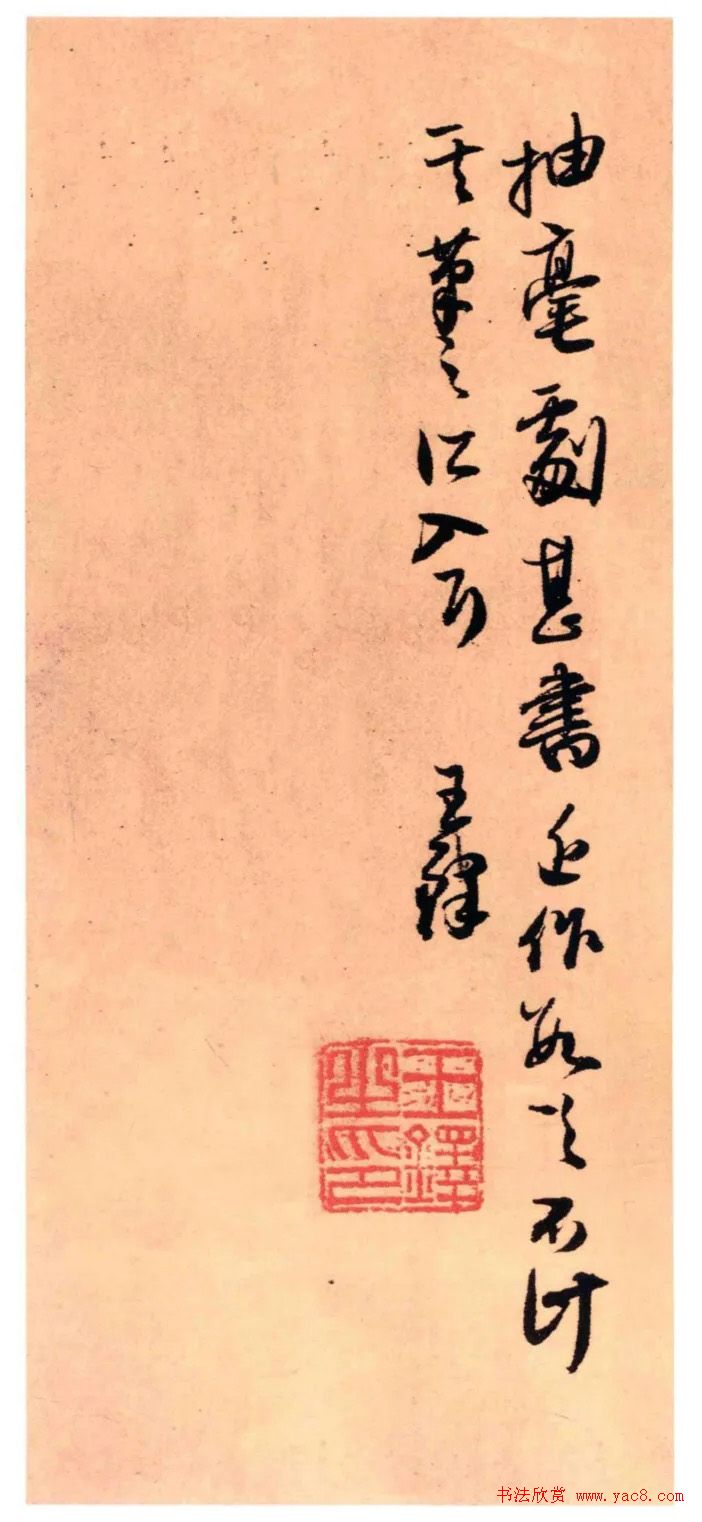 抽毫劇甚書近作數不計
其筆之入
王鐸
王鐸之印
书法欣赏 www.yac8.com